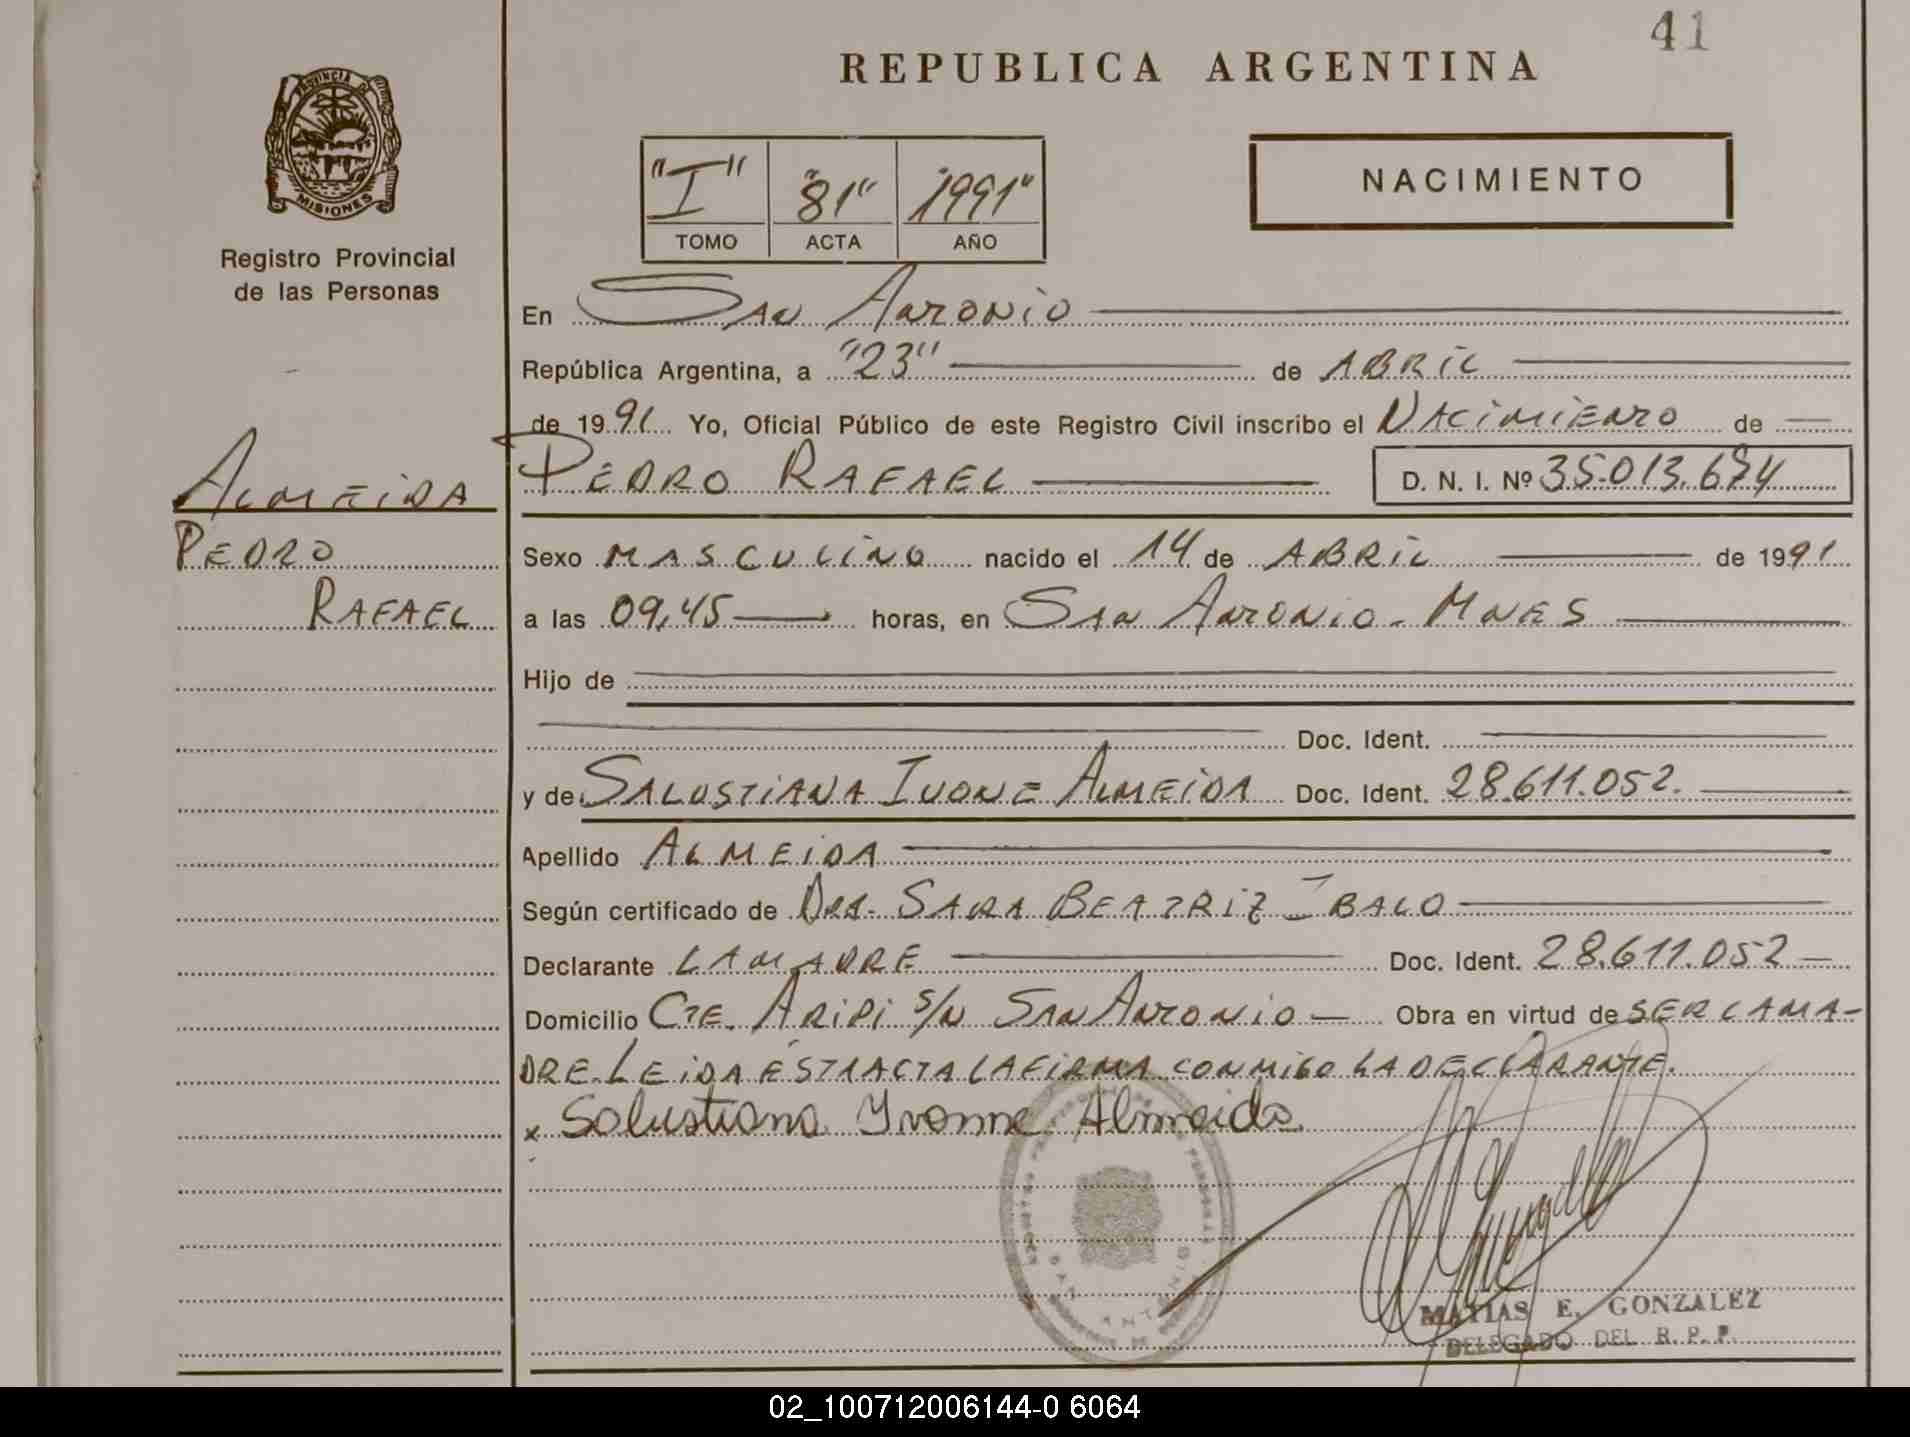 41
REPUBLICA ARGENTINA
PROVINCIA DE
MISIONES
Registro Provincial
de las Personas
"I" "81" "1991"
TOMO ACTA AÑO
NACIMIENTO
En San Antonio
República Argentina, a "23" de ABRIL
de 1991 Yo, Oficial Público de este Registro Civil inscribo el NACIMIENTO de
ALMEIDA
PEDRO RAFAEL D. N. I. Nº 35.013.674
PEDRO
RAFAEL
Sexo MASCULINO nacido el 14 de ABRIL de 1991
a las 09,45 horas, en SAN ANTONIO - MNES
Hijo de
Doc. Ident.
y de SALUSTIANA IVONE ALMEIDA Doc. Ident. 28.611.052.
Apellido ALMEIDA
Según certificado de DRA. SARA BEATRIZ IBALO
Declarante LA MADRE Doc. Ident. 28.611.052
Domicilio CTE. ARIPI S/N SAN ANTONIO Obra en virtud de SER LA MA-
DRE. LEIDA ESTA ACTA LA FIRMA CONMIGO LA DECLARANTE.
x Salustiana Yvonne Almeida.
SAN ANTONIO
MATIAS E. GONZALEZ
DELEGADO DEL R. P. P.
02_100712006144-0 6064